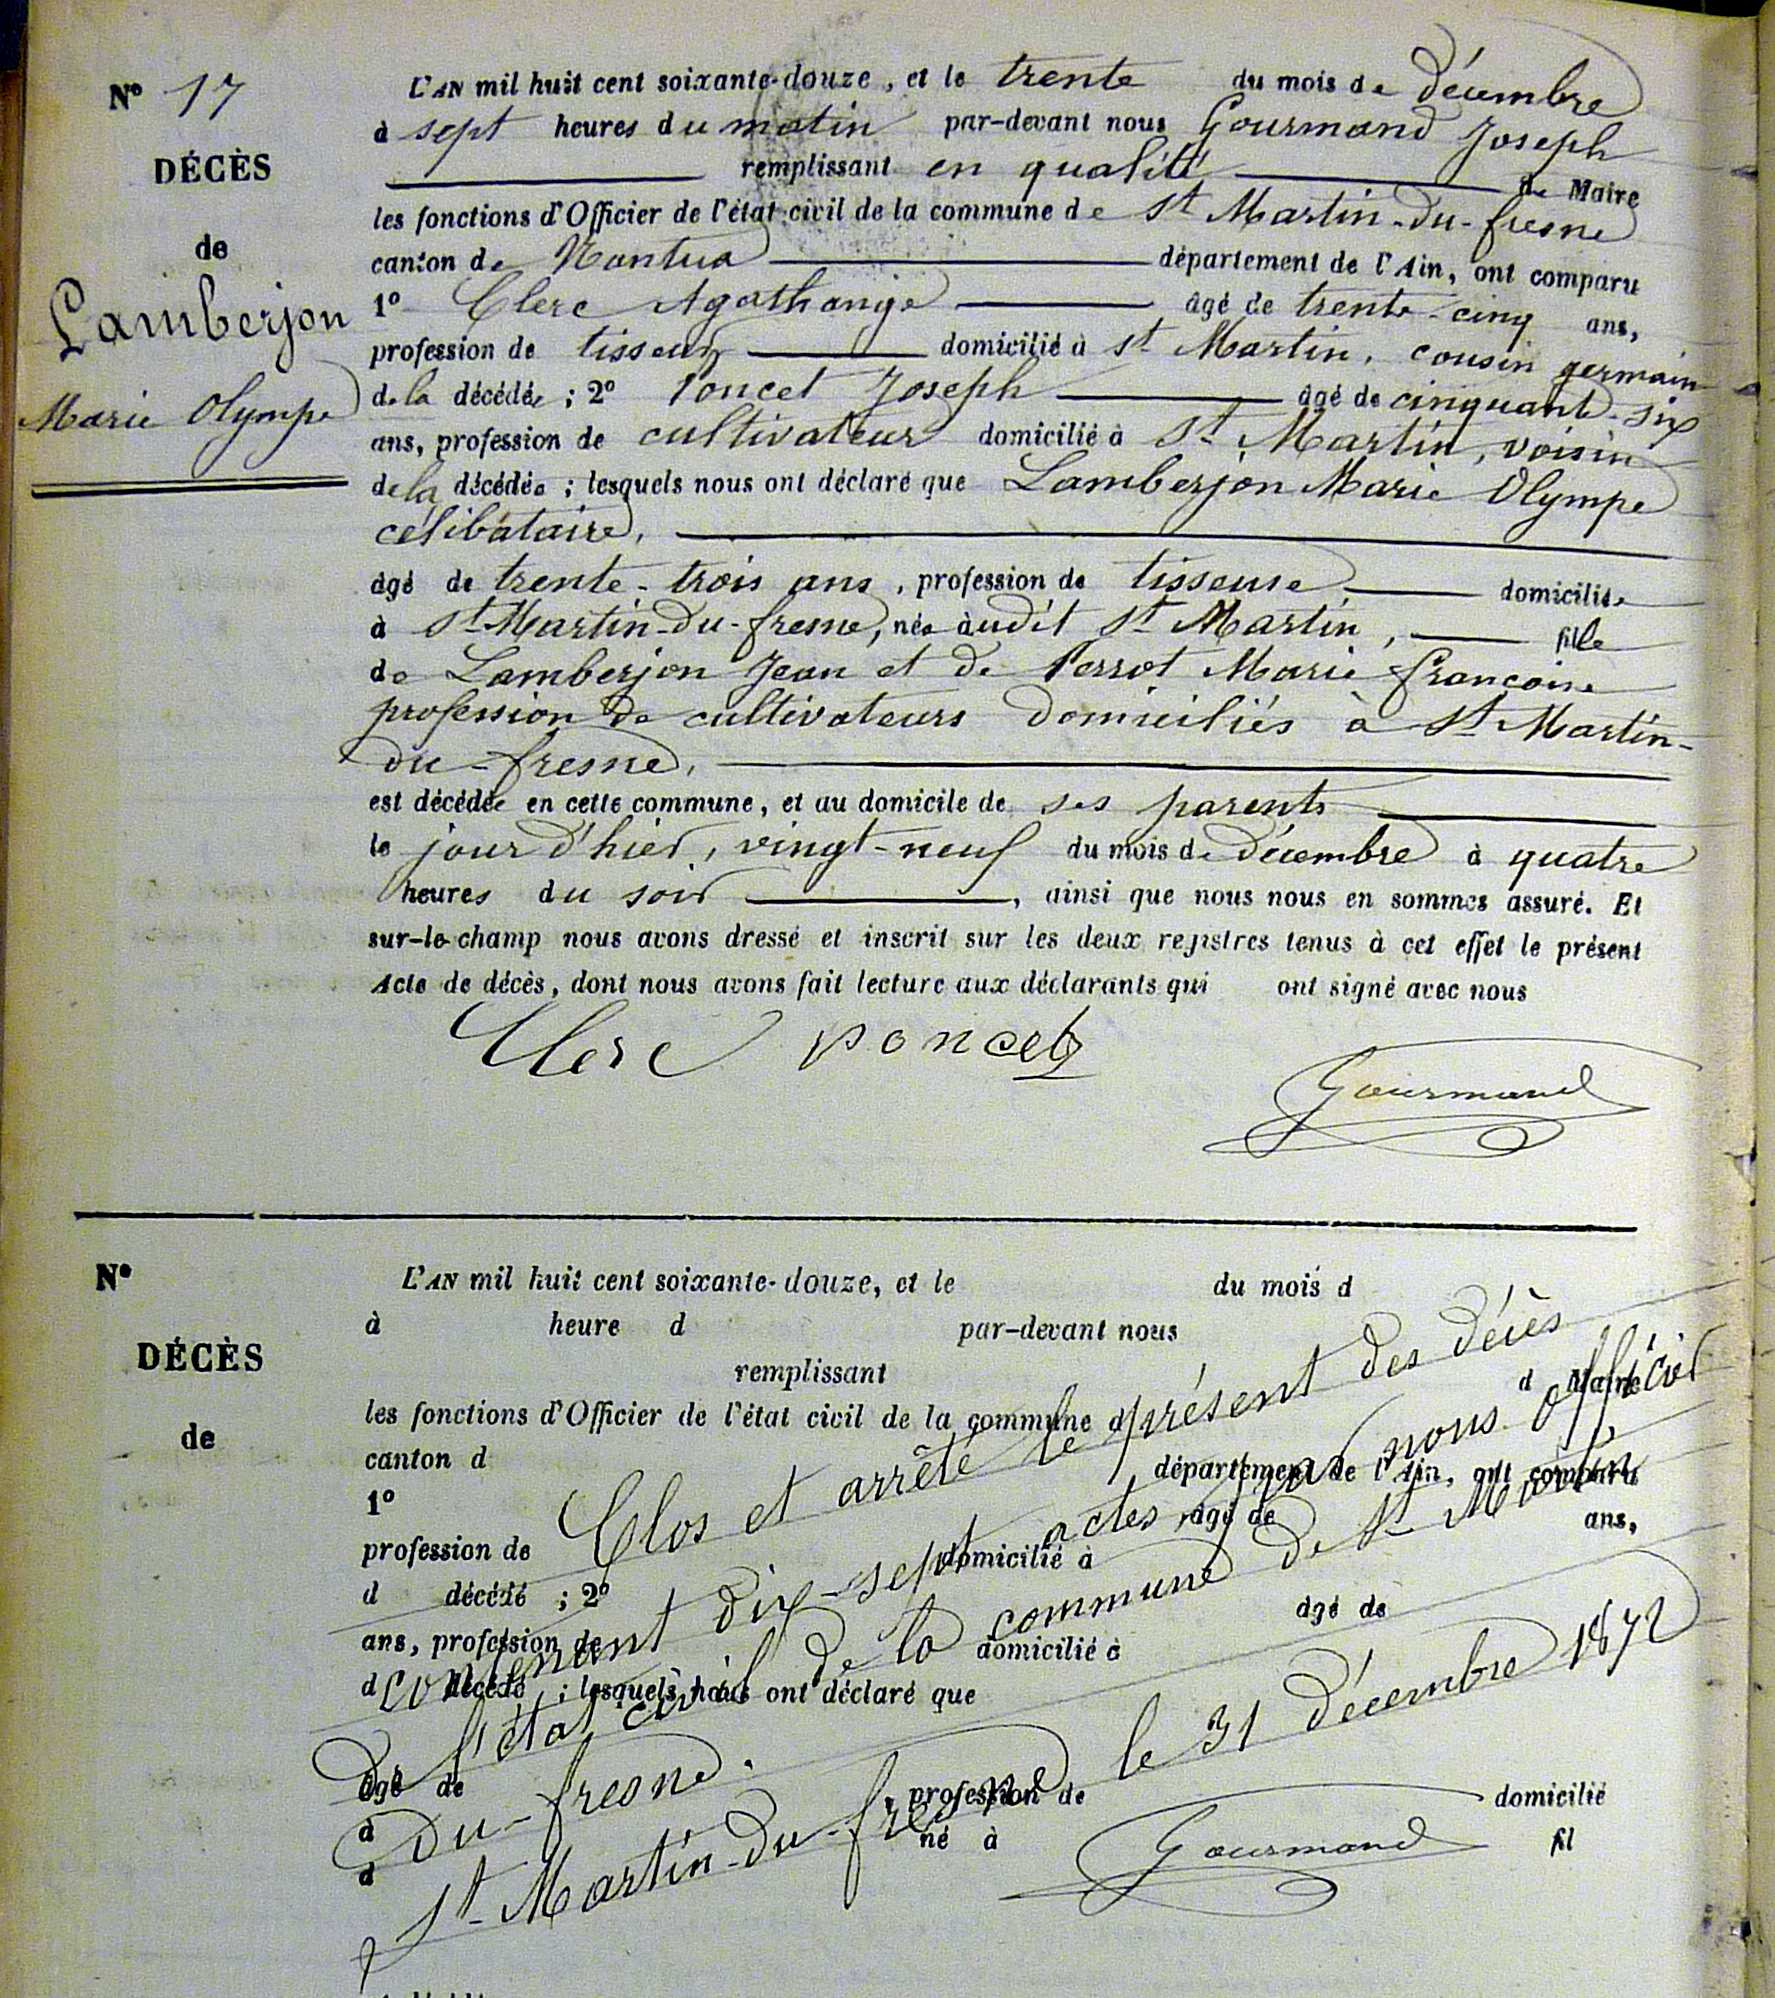 N° 17
DÉCÈS
de
Lamberjon
Marie Olympe
L'AN mil huit cent soixante-douze, et le trente du mois de décembre
à sept heures du matin par-devant nous Gourmand Joseph
remplissant en qualité de Maire
les fonctions d'Officier de l'état civil de la commune de St Martin-du-fresne
canton de Nantua département de l'Ain, ont comparu
1° Clerc Agathange âgé de trente-cinq ans,
profession de tisseur domicilié à St Martin, cousin germain
de la décédée ; 2° Poncet Joseph âgé de cinquante-six
ans, profession de cultivateur domicilié à St Martin, voisin
de la décédée ; lesquels nous ont déclaré que Lamberjon Marie Olympe
célibataire,
âgé de trente-trois ans, profession de tisseuse domiciliée
à St Martin-du-fresne, née àudit St Martin, fille
de Lamberjon Jean et de Perrot Marie françoise
profession de cultivateurs domiciliés à St Martin-
du-fresne,
est décédée en cette commune, et au domicile de ses parents
le jour d'hier, vingt-neuf du mois de décembre à quatre
heures du soir, ainsi que nous nous en sommes assuré. Et
sur-le-champ nous avons dressé et inscrit sur les deux registres tenus à cet effet le présent
Acte de décès, dont nous avons fait lecture aux déclarants qui ont signé avec nous
Clerc poncet
Gourmand
N°
DÉCÈS
de
L'AN mil huit cent soixante-douze, et le du mois d
à heure d par-devant nous
remplissant d Maire
les fonctions d'Officier de l'état civil de la commune d
canton d département de l'Ain, ont comparu
1° âgé de ans,
profession de domicilié à
d décédé ; 2° âgé de
ans, profession de domicilié à
d décédé ; lesquels nous ont déclaré que
âgé de profession de domicilié
à né à fil
d
Clos et arrêté le présent des décès
contenant dix-sept actes, par nous officier
de l'état civil de la commune de St Martin
du-fresne.
St Martin-du-fresne le 31 décembre 1872
Gourmand